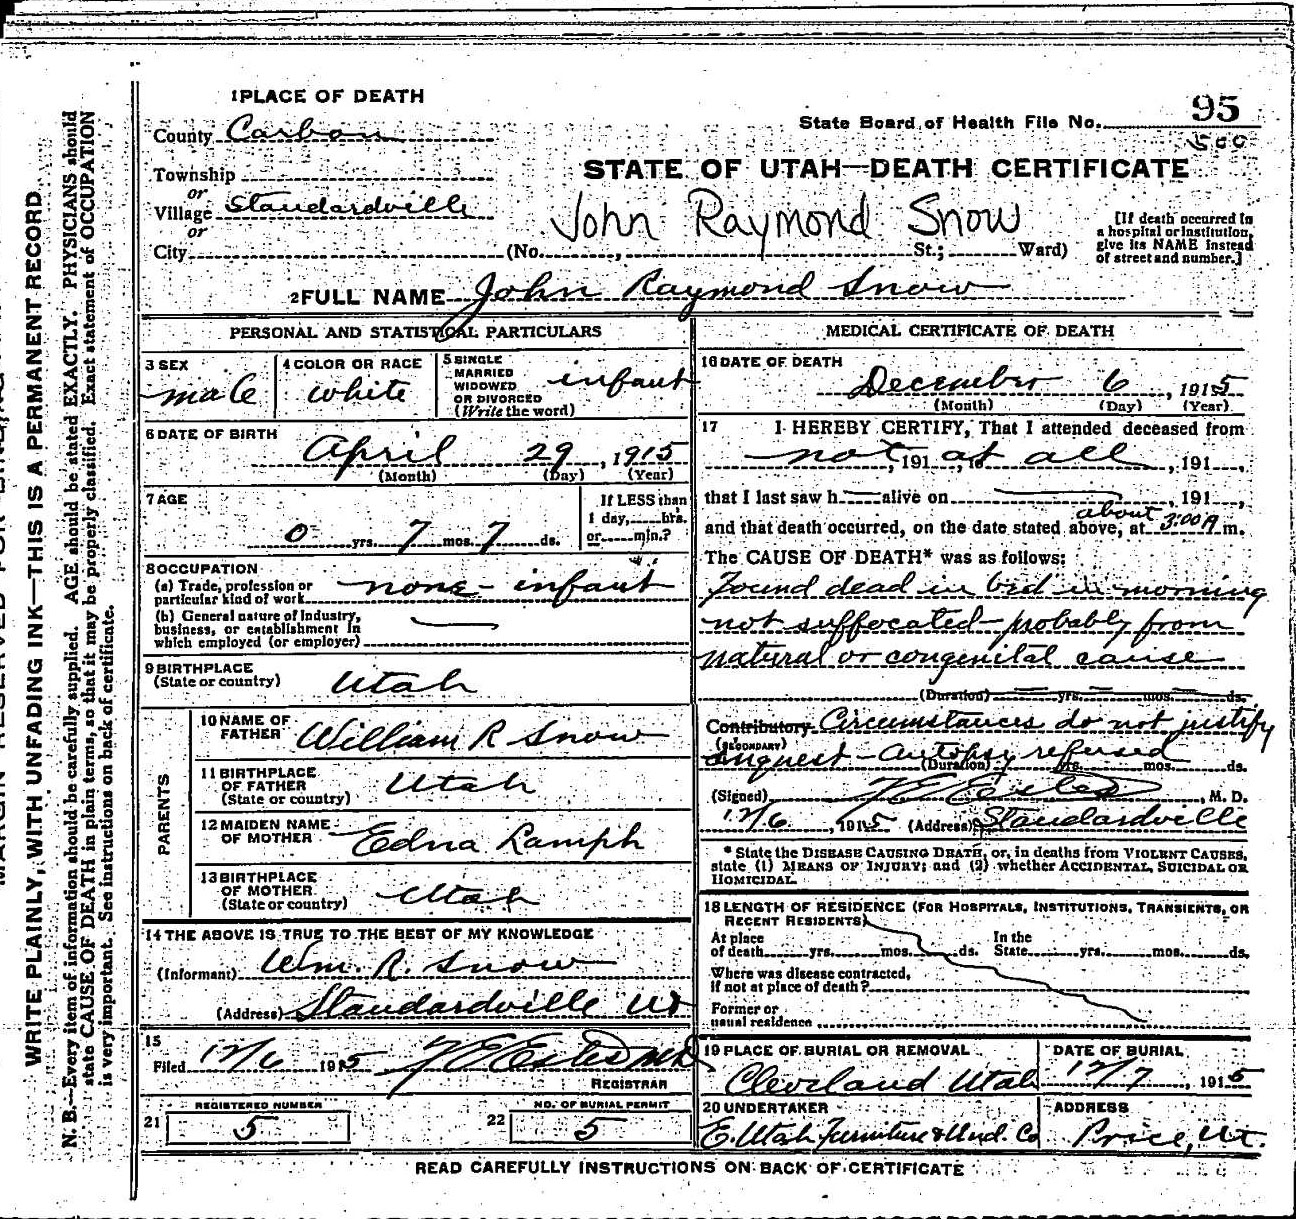 1 PLACE OF DEATH
County Carbon
Township
or
Village Standardville
or
City
State Board of Health File No. 95
500
STATE OF UTAH—DEATH CERTIFICATE
John Raymond Snow
(No. , St.; Ward)
[If death occurred in
a hospital or institution,
give its NAME instead
of street and number.]
2 FULL NAME John Raymond Snow
PERSONAL AND STATISTICAL PARTICULARS
3 SEX
male
4 COLOR OR RACE
white
5 SINGLE
MARRIED
WIDOWED
OR DIVORCED
(Write the word)
infant
6 DATE OF BIRTH
April 29, 1915
(Month) (Day) (Year)
7 AGE
0 yrs. 7 mos. 7 ds.
If LESS than
1 day, hrs.
or min.?
8 OCCUPATION
(a) Trade, profession or
particular kind of work none - infant
(b) General nature of industry,
business, or establishment in
which employed (or employer)
9 BIRTHPLACE
(State or country) Utah
PARENTS
10 NAME OF
FATHER William R Snow
11 BIRTHPLACE
OF FATHER
(State or country) Utah
12 MAIDEN NAME
OF MOTHER Edna Lamph
13 BIRTHPLACE
OF MOTHER
(State or country) Utah
14 THE ABOVE IS TRUE TO THE BEST OF MY KNOWLEDGE
(Informant) Wm. R. Snow
(Address) Standardville Ut
15
Filed 12/6 1915
REGISTRAR
21
REGISTERED NUMBER
5
22
NO. OF BURIAL PERMIT
5
MEDICAL CERTIFICATE OF DEATH
16 DATE OF DEATH
December 6, 1915
(Month) (Day) (Year)
17 I HEREBY CERTIFY, That I attended deceased from
not, 191 , to at all, 191 ,
that I last saw h alive on , 191 ,
about
and that death occurred, on the date stated above, at 3:00 A m.
The CAUSE OF DEATH* was as follows:
Found dead in bed in morning
not suffocated - probably from
natural or congenital cause
(Duration) yrs. mos. ds.
Contributory Circumstances do not justify
(SECONDARY)
inquest - autopsy refused
(Duration) yrs. mos. ds.
(Signed) , M. D.
12/6, 1915 (Address) Standardville
* State the DISEASE CAUSING DEATH, or, in deaths from VIOLENT CAUSES,
state (1) MEANS OF INJURY; and (2) whether ACCIDENTAL, SUICIDAL OR
HOMICIDAL.
18 LENGTH OF RESIDENCE (FOR HOSPITALS, INSTITUTIONS, TRANSIENTS, OR
RECENT RESIDENTS)
At place
of death yrs. mos. ds.
In the
State yrs. mos. ds.
Where was disease contracted,
if not at place of death?
Former or
usual residence
19 PLACE OF BURIAL OR REMOVAL
Cleveland Utah
DATE OF BURIAL
12/7, 1915
20 UNDERTAKER
E. Utah Furniture & Und. Co
ADDRESS
Price, Ut.
READ CAREFULLY INSTRUCTIONS ON BACK OF CERTIFICATE
WRITE PLAINLY, WITH UNFADING INK—THIS IS A PERMANENT RECORD
N. B.—Every item of information should be carefully supplied. AGE should be stated EXACTLY. PHYSICIANS should
state CAUSE OF DEATH in plain terms, so that it may be properly classified. Exact statement of OCCUPATION
is very important. See instructions on back of certificate.